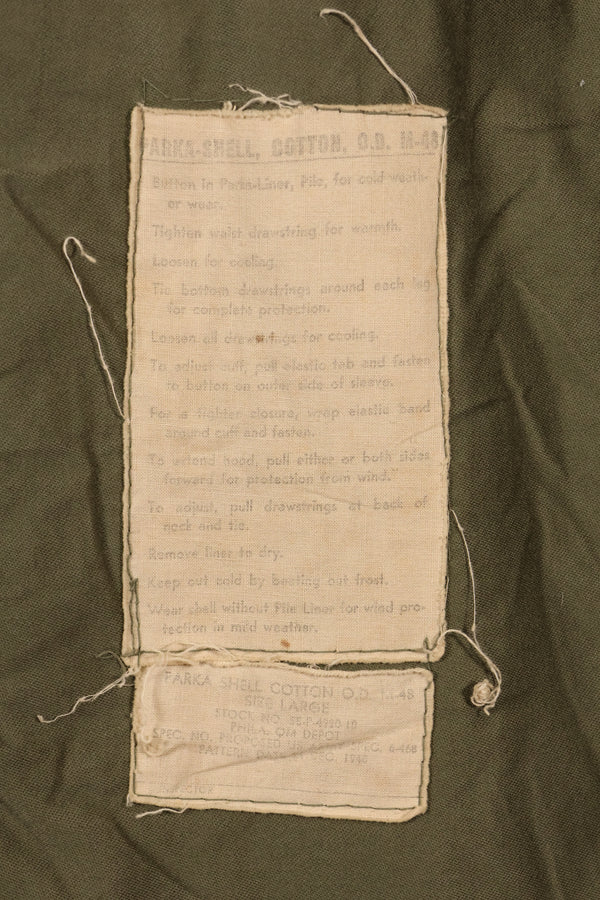 PARKA-SHELL, COTTON, O.D. M-48
Button in Parka-Liner, Pile, for cold weath-
er wear.
Tighten waist drawstring for warmth.
Loosen for cooling.
Tie bottom drawstrings around each leg
for complete protection.
Loosen all drawstrings for cooling.
To adjust cuff, pull elastic tab and fasten
to button on outer side of sleeve.
For a tighter closure, wrap elastic band
around cuff and fasten.
To extend hood, pull either or both sides
forward for protection from wind."
To adjust, pull drawstrings at back of
neck and tie.
Remove liner to dry.
Keep out cold by beating out frost.
Wear shell without Pile Liner for wind pro-
tection in mild weather.
PARKA SHELL COTTON O.D. M-48
SIZE LARGE
STOCK NO. 55-P-4920-10
PHILA. QM DEPOT
SPEC. NO. PROPOSED SPEC. 6-468
PATTERN DATE DEC. 1948
INSPECTOR